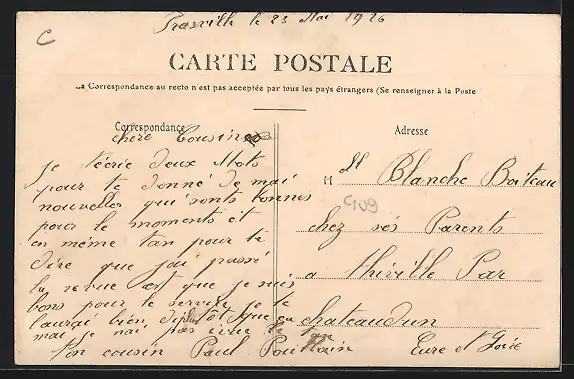 C
Prasville le 23 Mai 1926
CARTE POSTALE
La Correspondance au recto n'est pas acceptée par tous les pays étrangers (Se renseigner à la Poste
Correspondance
Adresse
chère Cousine
Je t'écrie deux Mots
pour te donné de mai
nouvelles qui sonts bonnes
pour le moments et
en même tan pour te
dire que j'ai passé
la revue et que je suis
bons pour le service je te
l'aurai bien di plus tôt que ça
mai je n'ai pas
ton cousin Paul Poulvain
M ell Blanche Boiteau
chez sés Parents
a thiville Par
chateaudun
Eure et Loire
909